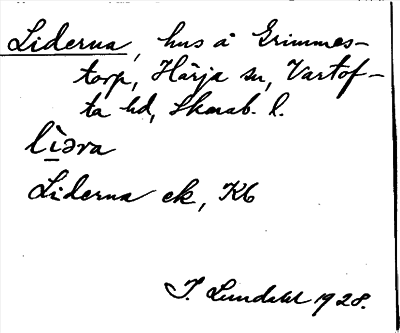 Liderna, hus å Grimmes-
torp, Härja sn, Vartof-
ta hd, Skarab. l.
lì̠ǝra
Liderna ek, Kb
I. Lundahl 1928.